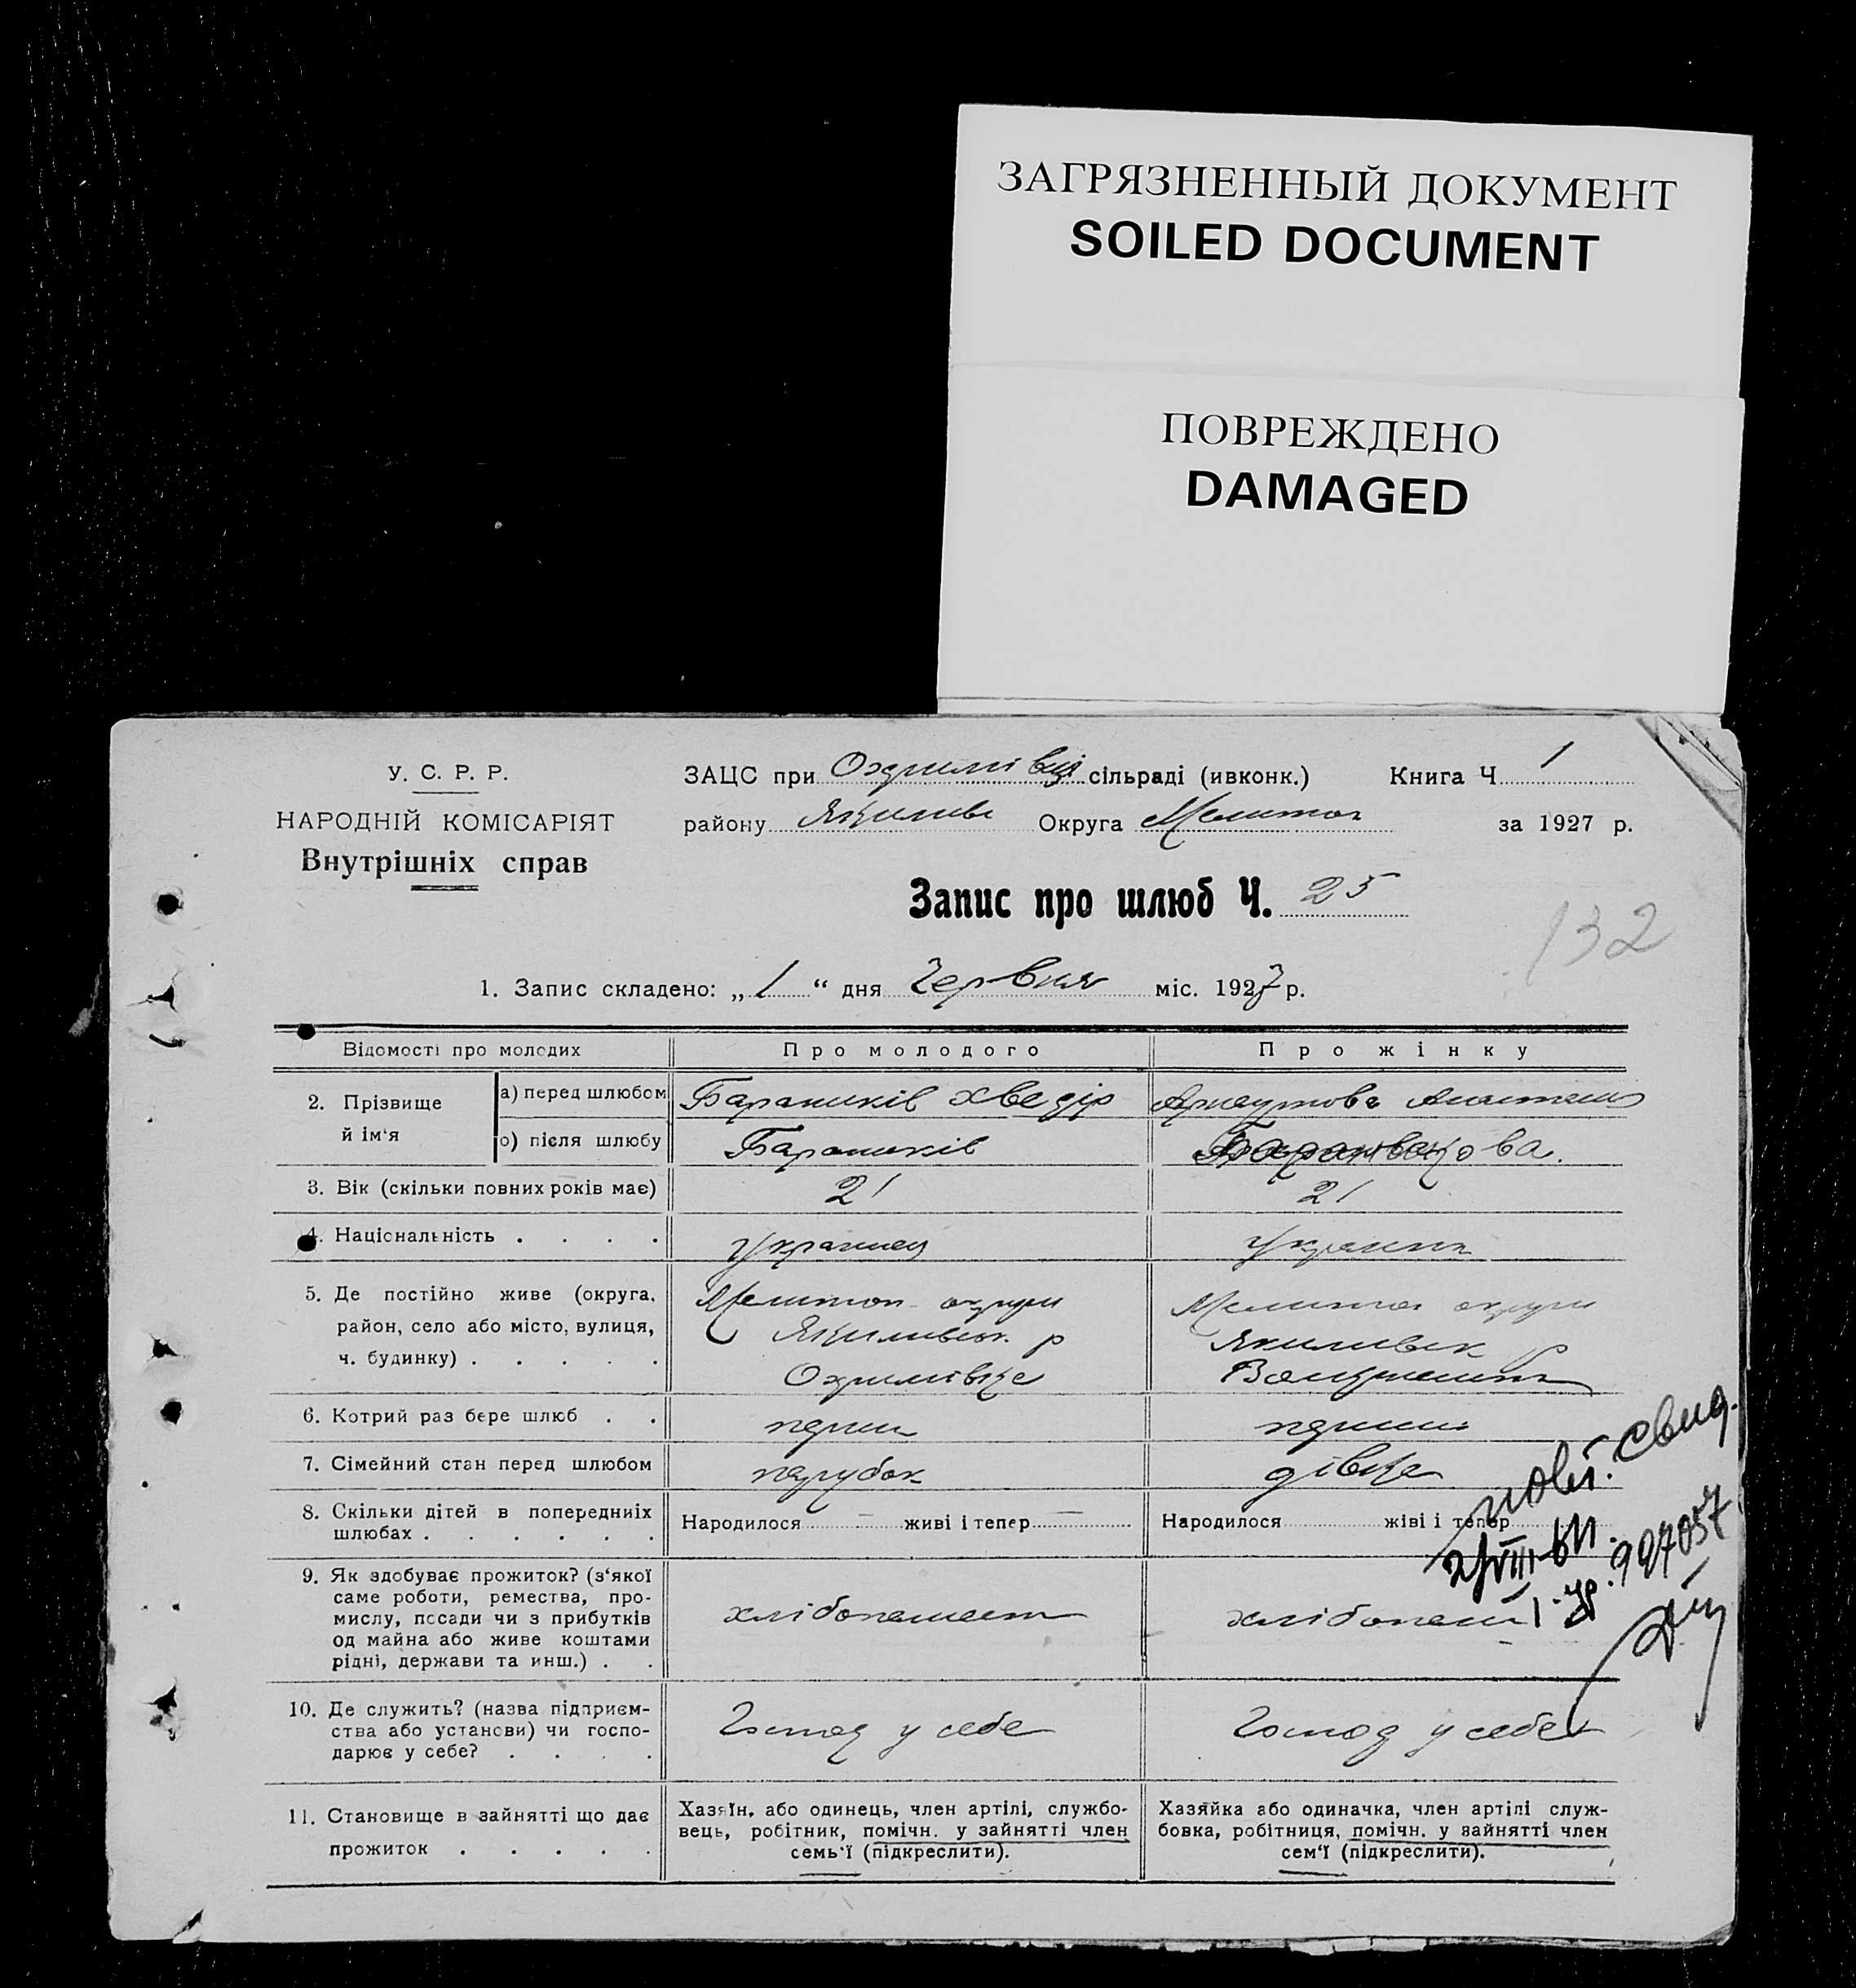 ЗАГРЯЗНЕННЫЙ ДОКУМЕНТ
SOILED DOCUMENT
ПОВРЕЖДЕНО
DAMAGED
У. С. Р. Р.
НАРОДНІЙ КОМІСАРІЯТ
Внутрішніх справ
ЗАЦС при сільраді (ивконк.) Книга Ч 1
району Округа Мелитоп за 1927 р.
Запис про шлюб Ч. 25
132
1. Запис складено: „ 1 “ дня Червня міс. 1927 р.
Відомості про молодих Про молодого Про жінку
2. Прізвище й ім‘я
а) перед шлюбом Бараників Хведір Арнаутова
о) після шлюбу Бараників
3. Вік (скільки повних років має) 21 21
4. Національність . . . . Украинец
5. Де постійно живе (округа, Мелитоп округи округи
район, село або місто, вулиця, Якимівськ. р Якимівск р
ч. будинку) . . . . . Охримівка
6. Котрий раз бере шлюб . . перш
7. Сімейний стан перед шлюбом парубок дівка
8. Скільки дітей в попередниіх Народилося — живі і тепер — Народилося жіві і тепер
шлюбах . . . . . .
9. Як здобуває прожиток? (з‘якої
саме роботи, ремества, про-
мислу, посади чи з прибутків
од майна або живе коштами
рідні, держави та инш.) . .
хлібопашест хлібопаш
10. Де служить? (назва підприєм-
ства або установи) чи госпо-
дарює у себе? . . . .
у себе у себе
11. Становище в зайнятті що дає
прожиток . . . . .
Хазяїн, або одинець, член артілі, службо-
вець, робітник, помічн. у зайнятті член
семь‘ї (підкреслити).
Хазяйка або одиначка, член артілі служ-
бовка, робітниця, помічн. у зайнятті член
сем‘ї (підкреслити).
свид.
927057